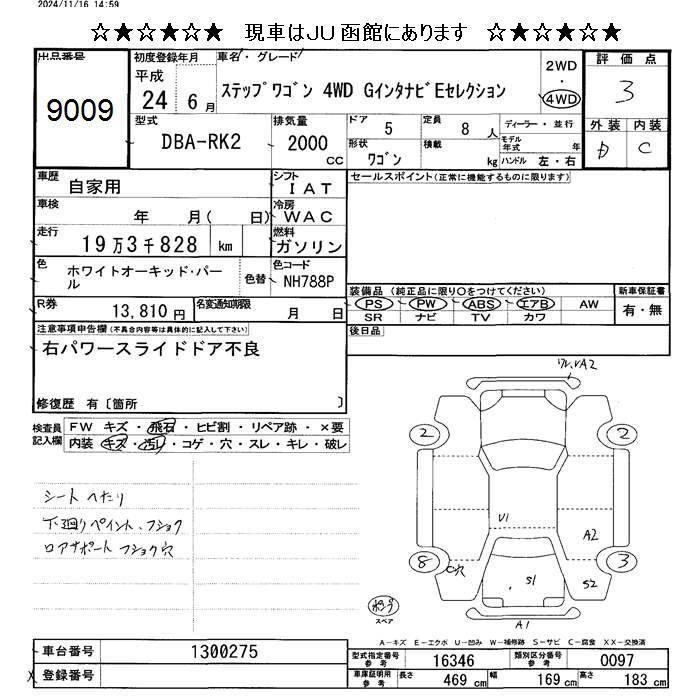 2024/11/16 14:59
☆★☆★☆★ 現車はJU函館にあります ☆★☆★☆★
出品番号
9009
初度登録年月
平成
24 6月
車名・グレード
ステップワゴン 4WD GインタナビEセレクション
2WD
・
4WD
評価点
3
外装 内装
C
型式
DBA-RK2
排気量
2000
CC
ドア
5
定員
8 人
形状
ワゴン
積載
kg
ディーラー・並行
モデル年式 年
ハンドル 左・右
車歴
自家用
シフト
IAT
車検
年 月( 日)
冷房
WAC
走行
19万3千828 km
燃料
ガソリン
色
ホワイトオーキッド・パール
色替
色コード
NH788P
R券
13,810円
名変通知期限
月 日
セールスポイント(正常に機能するものに限ります)
装備品 (純正品に限り○をつけてください)
PS ・ PW ・ ABS ・ エアB ・ AW
SR ナビ TV カワ
新車保証書
有・無
後日品
注意事項申告欄(不具合内容等は具体的に記入して下さい)
右パワースライドドア不良
修復歴 有〔箇所 〕
検査員記入欄
FW キズ・飛石・ヒビ割・リペア跡・×要
内装 キズ・汚れ・コゲ・穴・スレ・キレ・破レ
シートへたり
下廻りペイント、フショク
ロアサポートフショク穴
A2
2
2
U1
A2
8
C穴
3
S1
S2
スペア
A1
A-キズ E-エクボ U-凹み W-補修跡 S-サビ C-腐食 XX-交換済
車台番号
1300275
登録番号
型式指定番号
参考
16346
類別区分番号
参考
0097
車庫証明用
参考
長さ 469 cm
幅 169 cm
高さ 183 cm